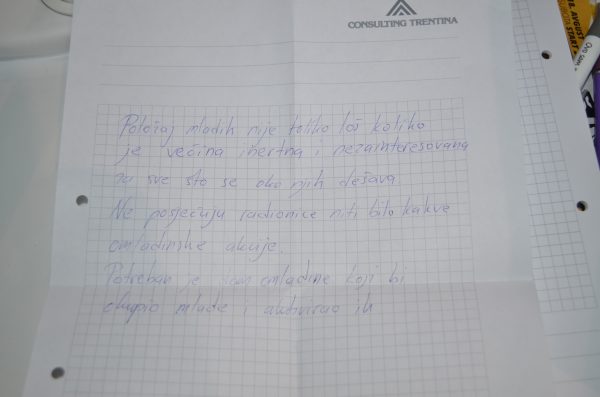 CONSULTING TRENTINA
Položaj mladih nije toliko loš koliko
je većina inertna i nezainteresovana
za sve što se oko njih dešava.
Ne posjećuju radionice niti bilo kakve
omladinske akcije.
Potreban je dom omladine koji bi
okupio mlade i aktivirao ih
18. AVGUST
SUBOTA START